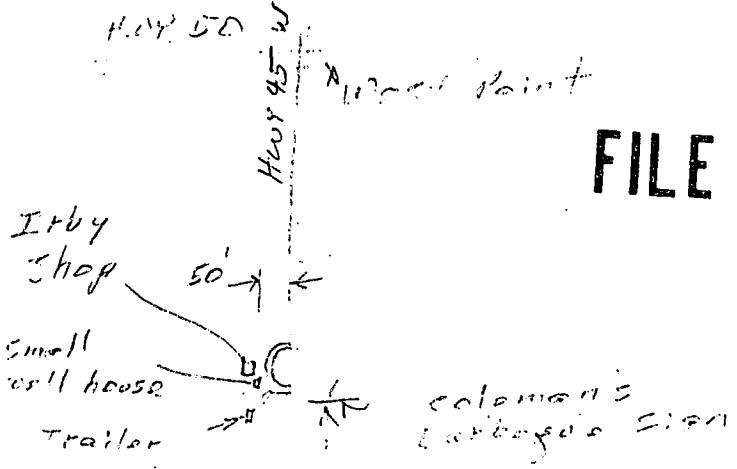 HWY 50
HWY 45 W
West Point
FILE
Irby
Shop
50'
Small
well house
Trailer
Coleman's
Sign